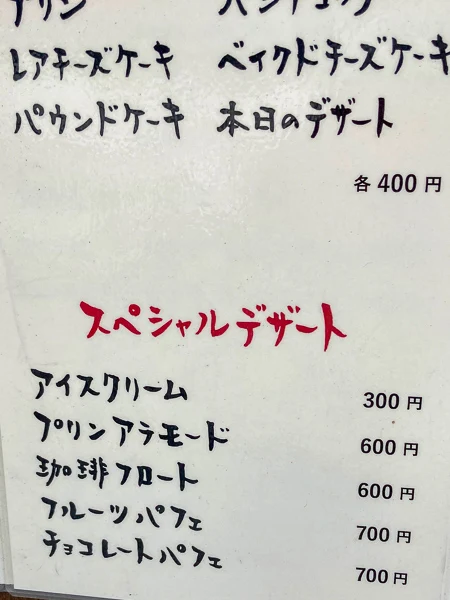 プリン
レアチーズケーキ ベイクドチーズケーキ
パウンドケーキ 本日のデザート
各 400 円
スペシャルデザート
アイスクリーム 300 円
プリンアラモード 600 円
珈琲フロート 600 円
フルーツパフェ 700 円
チョコレートパフェ 700 円